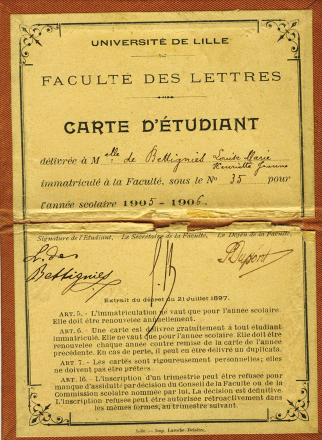 UNIVERSITÉ DE LILLE
FACULTÉ DES LETTRES
CARTE D'ÉTUDIANT
délivrée à M elle de Bettignies Louise Marie
Henriette Jeanne
immatriculé à la Faculté, sous le No 35 pour
l'année scolaire 1905 - 1906.
Signature de l'Étudiant, Le Secrétaire de la Faculté, Le Doyen de la Faculté,
L. de
Bettignies
Extrait du décret du 21 Juillet 1897.
ART. 5. - L'immatriculation ne vaut que pour l'année scolaire.
Elle doit être renouvelée annuellement.
ART. 6. - Une carte est délivrée gratuitement à tout étudiant
immatriculé. Elle ne vaut que pour l'année scolaire. Elle doit être
renouvelée chaque année contre remise de la carte de l'année
précédente. En cas de perte, il peut en être délivré un duplicata.
ART. 7. - Les cartes sont rigoureusement personnelles; elles
ne doivent pas être prêtées.
ART. 16. - L'inscription d'un trimestre peut être refusée pour
manque d'assiduité par décision du Conseil de la Faculté ou de la
Commission scolaire nommée par lui. La décision est définitive.
L'inscription refusée peut être autorisée rétroactivement dans
les mêmes formes, au trimestre suivant.
Lille - Imp. Laroche-Delattre.